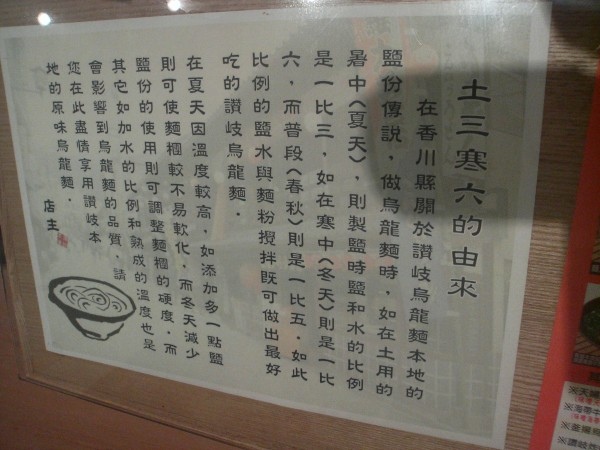 土三寒六的由來
在香川縣關於讃岐烏龍麵本地的
鹽份傳說，做烏龍麵時，如在土用的
暑中（夏天），則製鹽時鹽和水的比例
是一比三，如在寒中（冬天）則是一比
六，而普段（春秋）則是一比五，如此
比例的鹽水與麵粉攪拌既可做出最好
吃的讃岐烏龍麵．
在夏天因溫度較高，如添加多一點鹽
則可使麵糰較不易軟化，而冬天減少
鹽份的使用則可調整麵糰的硬度，而
其它如加水的比例和熟成的溫度也是
會影響到烏龍麵的品質，請
您在此盡情享用讃岐本
地的原味烏龍麵．
店主